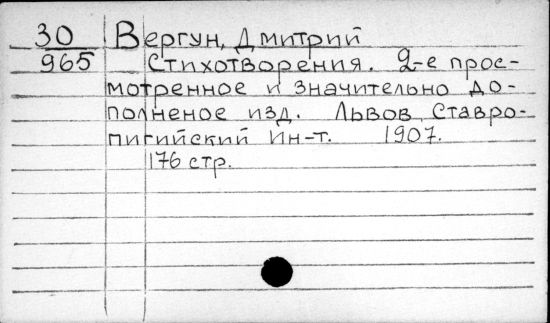 30 Вергун, Дмитрий
965 Стихотворения. 2-е прос-
мотренное и значительно до-
полненое изд. Львов, Ставро-
пигийский Ин-т. 1907.
176 стр.